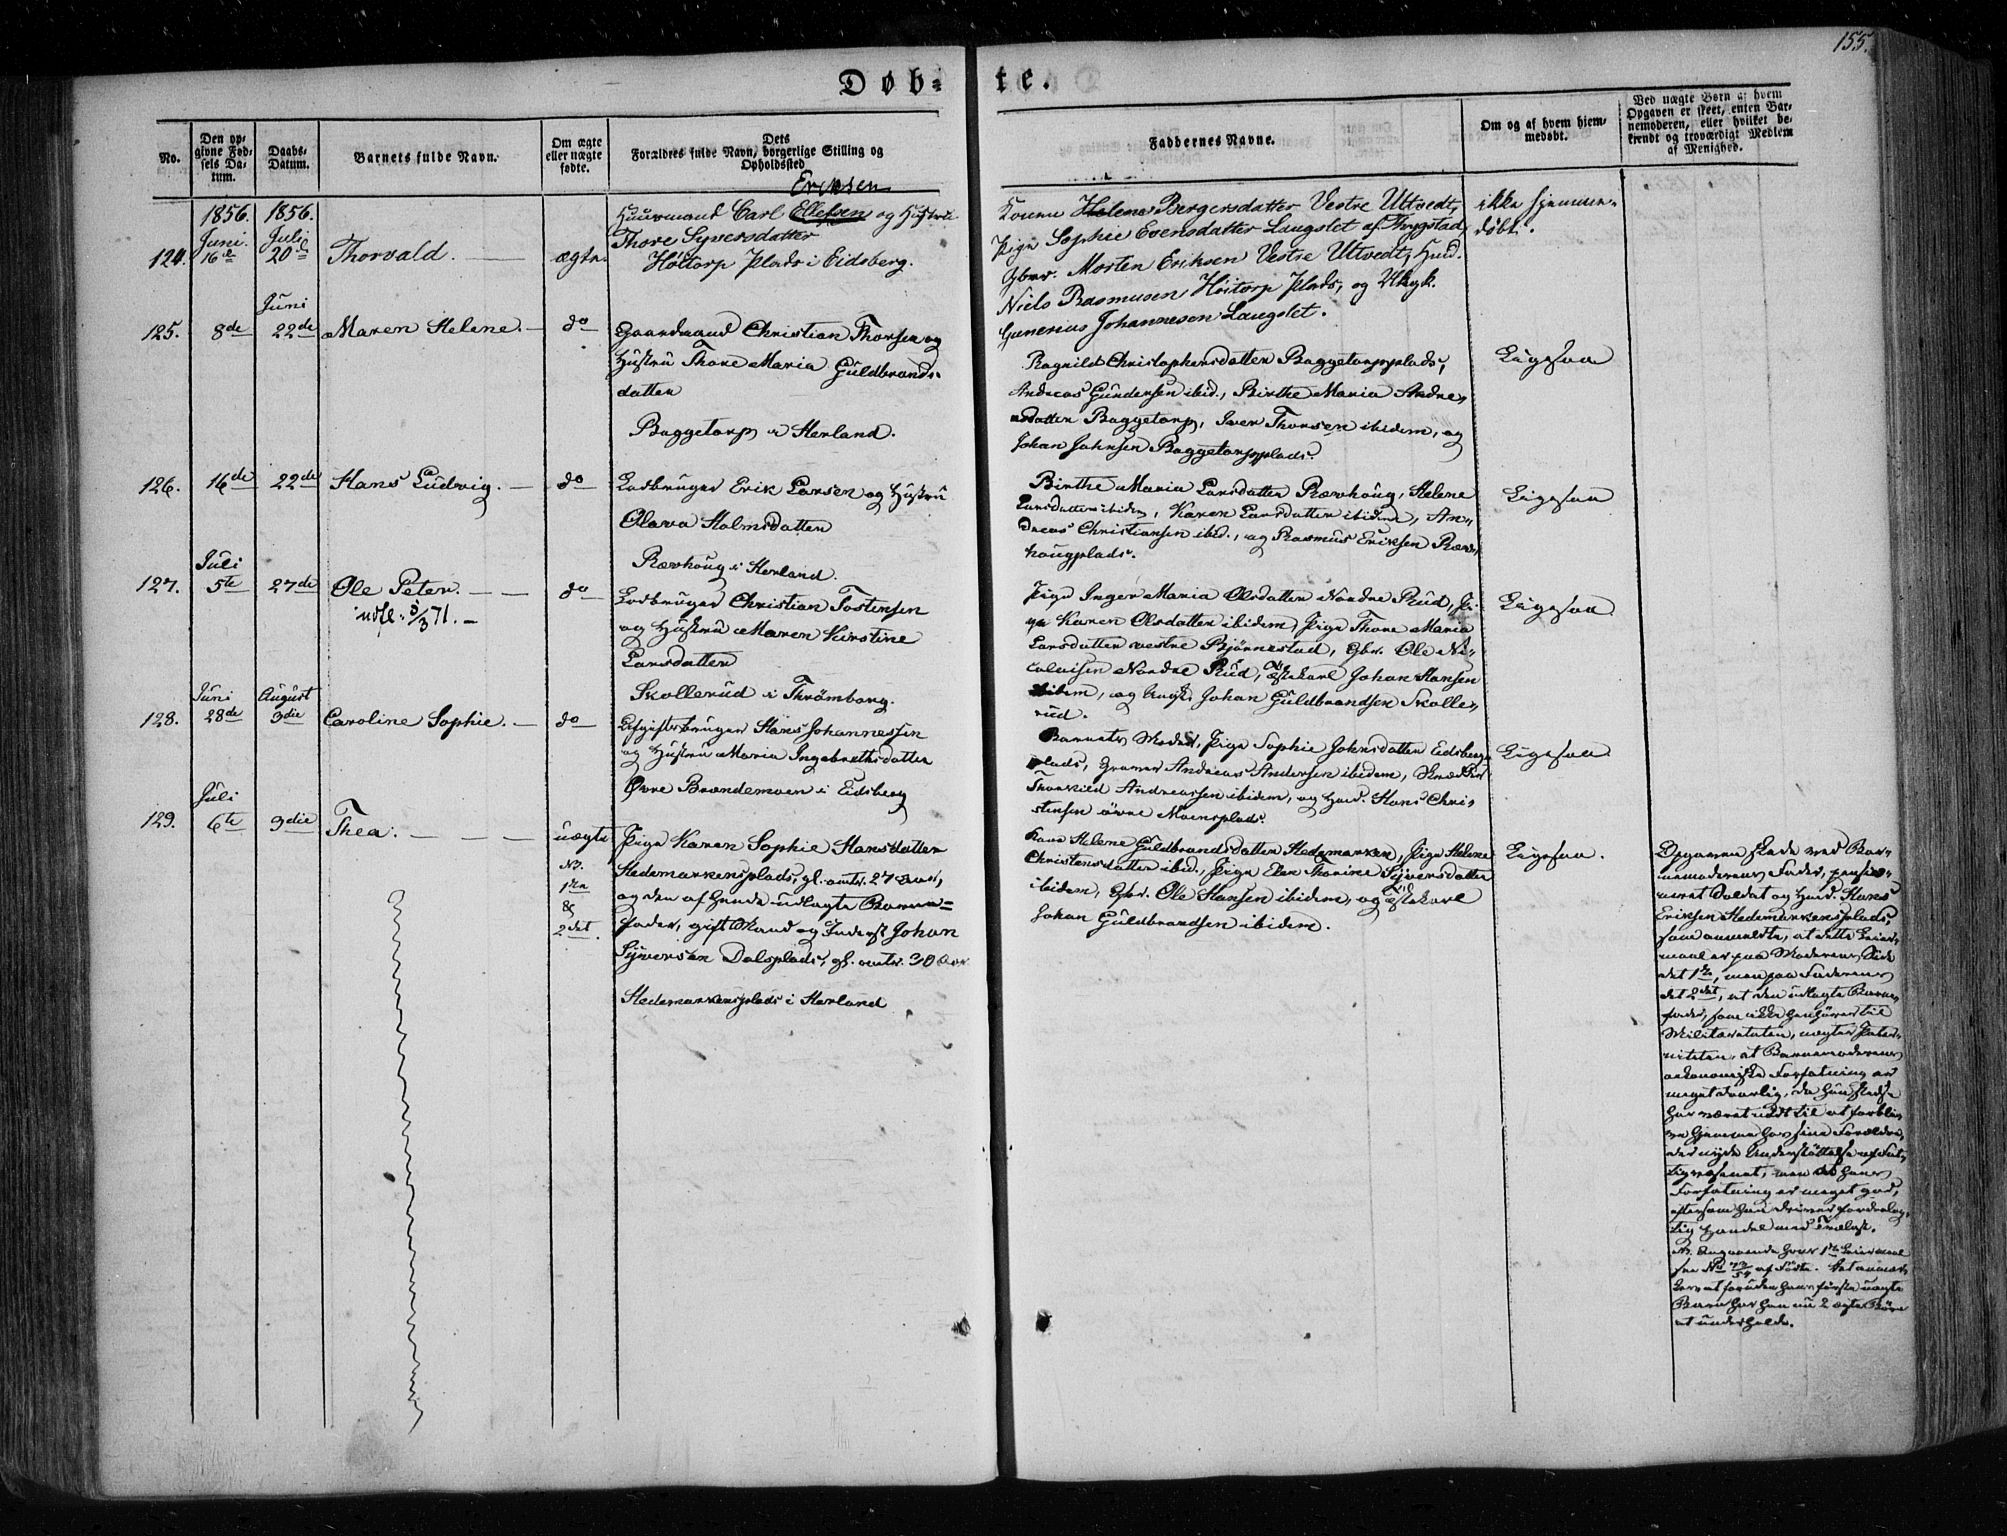 155.
Døb=
te.
No.
Den op-
givne Fød-
sels Da-
tum.
Daabs-
Datum.
Barnets fulde Navn.
Om ægte
eller uægte
fødte.
Dets
Forældres fulde Navn, borgerlige Stilling og
Opholdssted
Faddernes Navne.
Om og af hvem hjem-
medøbt.
Ved uægte Børn af hvem
Opgaven er skeet, enten Bar-
nemoderen, eller hvilket be-
kjendt og troværdigt Medlem
af Menighed.
1856. 1856.
124.
Juni.
16de
Juli
20de
Thorvald.
ægte.
Eriksen
Huusmand Carl Ellefsen og Hustru
Thore Syversdatter
Høitorp Plads i Eidsberg.
Konen Helene Bergersdatter Vestre Utvedt,
Pige Sophie Evensdatter Langslet af Thrygstad,
Gbmr. Morten Eriksen Vestre Utvedt, Husm.
Niels Rasmusen Høitorp Plads, og Ukgk.
Gunerius Johannesen Langslet.
ikke hjemme-
døbt.
125.
8de
Juni
22de
Maren Helene.
do
Gaardmand Christian Thorsen og
Hustru Thore Maria Guldbrands-
datter
Baggetorp i Herland.
Ragnild Christophersdatter Baggetorpplads,
Andreas Gundersen ibid., Birthe Maria Andre-
asdatter Baggetorp, Iver Thorsen ibidem, og
Johan Jahnsen Baggetorpplads.
Ligesaa
126.
16de
22de
Hans Ludvig.
do
Lodbruger Erik Larsen og Hustru
Olava Holmsdatter
Rævhoug i Herland.
Birthe Maria Larsdatter Rævhoug, Helene
Larsdatter ibidem, Karen Larsdatter ibidem, An-
dreas Christiansen ibid., og Rasmus Eriksen Ræv-
hougplads.
Ligesaa
127.
Juli
5te
27de
Ole Peter.
udfl. 5/3 71.
do
Lodbruger Christian Tostensen
og Hustru Maren Kirstine
Larsdatter
Skollerud i Thrømborg.
Pige Inger Maria Olsdatter Nordre Rud, Pi-
ge Karen Olsdatter ibidem, Pige Thore Maria
Larsdatter vestre Bjørnestad, Gbr. Ole Ni-
colaisen Nordre Rud, Æskekarl Johan Hansen
ibidem, og Ungk. Johan Guldbrandsen Skolle-
rud.
Ligesaa
128.
Juni
28de
August
3die
Caroline Sophie.
do
Lifgiftsbruger Hans Johannessen
og Hustru Maria Ingebrethsdatter
Øvre Brændemoen i Eidsberg
Barnets Moder, Pige Sophie Johnsdatter Eidsberg
plads, Gammr Andreas Andersen ibidem, Skrædder
Thorkild Andreassen ibidem, og Husm. Hans Chris-
tensen øvre Moensplads.
Ligesaa
129.
Juli
6te
3die
Thea.
uægte
NB.
1ste
&
2det
Pige Karen Sophie Hansdatter
Hedemarkensplads, gl. omtr. 27 Aar,
og den af hende udlagte Barne-
fader, gift Mand og Inderst Johan
Syversen Dalsplads, gl. omtr. 30 Aar
Hedemarkensplads i Herland
Kone Helene Guldbrandsdatter Hedemarken, Pige Helene
Christensdatter ibid., Pige Elen Marine Syversdatter
ibidem, Gbr. Ole Hansen ibidem, og Æskekarl
Johan Guldbrandsen ibidem.
Ligesaa.
Opgaven skede ved Bar-
nemoderens Fader, pensio-
neret Soldat og Husm. Hans
Eriksen Hedemarkensplads,
som anmeldte, at dette Leier-
maal er paa Moderens Side
det 1ste, men paa Faderens
det 2det, at den udlagte Barne-
fader, som ikke henhører til
Militæretaten, nægter Pater-
niteten, at Barnemoderens
oekonomiske Forfatning er
meget daarlig, da hun stedse
har været nødt til at forbli-
ve hjemme hos sine Forældre,
der nyde Understøttelse af Fat-
tigvæsenet, men at hans
Forfatning er meget god,
eftersom han driver fordelag-
tig Handel med Trælast.
NB. Angaaende hans 1ste Leiermaal
see No 72/54 af Fødte. Det anmær-
kes at foruden hans første uægte
Barn har han nu 2 ægte Børn
at underholde.